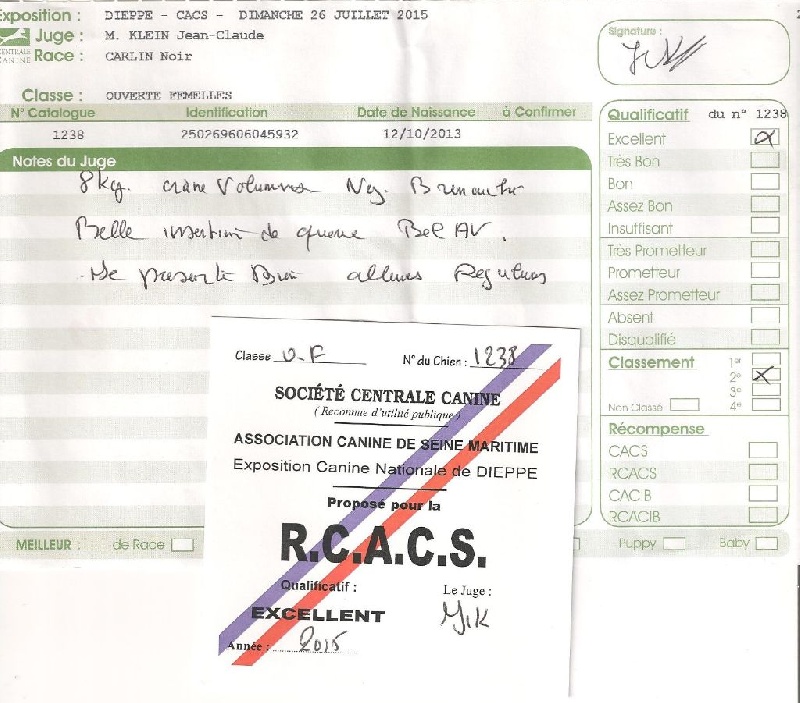 Exposition : DIEPPE - CACS - DIMANCHE 26 JUILLET 2015
Juge : M. KLEIN Jean-Claude
CENTRALE CANINE
Race : CARLIN Noir
Signature :
Classe : OUVERTE FEMELLES
N° Catalogue Identification Date de Naissance à Confirmer
1238 250269606045932 12/10/2013
Notes du Juge
8kg. crane Volumineux
Belle insertion de queue Bel AV.
Se présente Bien allures Régulières
Qualificatif du n° 1238
Excellent
Très Bon
Bon
Assez Bon
Insuffisant
Très Prometteur
Prometteur
Assez Prometteur
Absent
Disqualifié
Classement 1er
2e X
3e
Non Classé 4e
Récompense
CACS
RCACS
CACIB
RCACIB
MEILLEUR : de Race Puppy Baby
Classe O.F N° du Chien : 1238
SOCIÉTÉ CENTRALE CANINE
(Reconnue d'utilité publique)
ASSOCIATION CANINE DE SEINE MARITIME
Exposition Canine Nationale de DIEPPE
Proposé pour la
R.C.A.C.S.
Qualificatif :
Le Juge :
EXCELLENT
Année : 2015